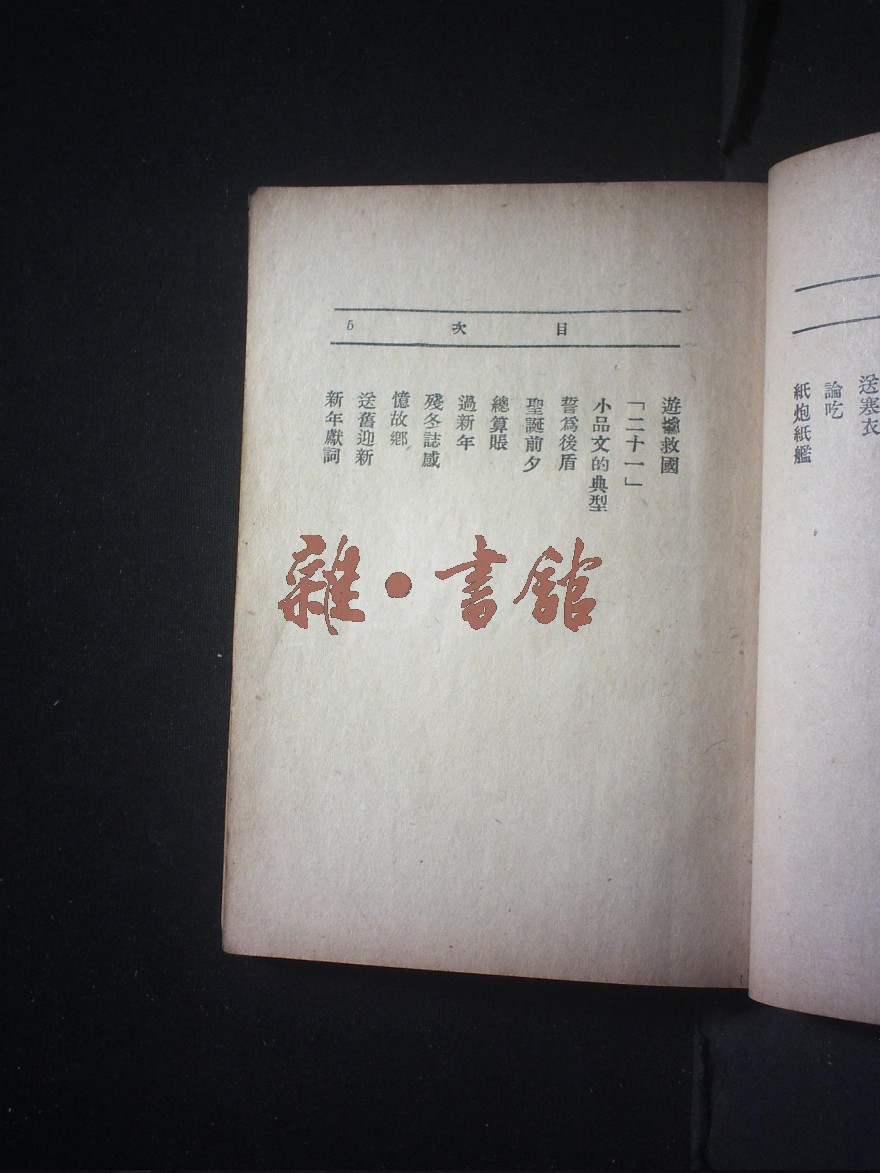 送寒衣
論吃
紙炮紙艦
目次 5
遊藝救國
「二十一」
小品文的典型
誓爲後盾
聖誕前夕
總算賬
過新年
殘冬誌感
憶故鄉
送舊迎新
新年獻詞
雜·書館